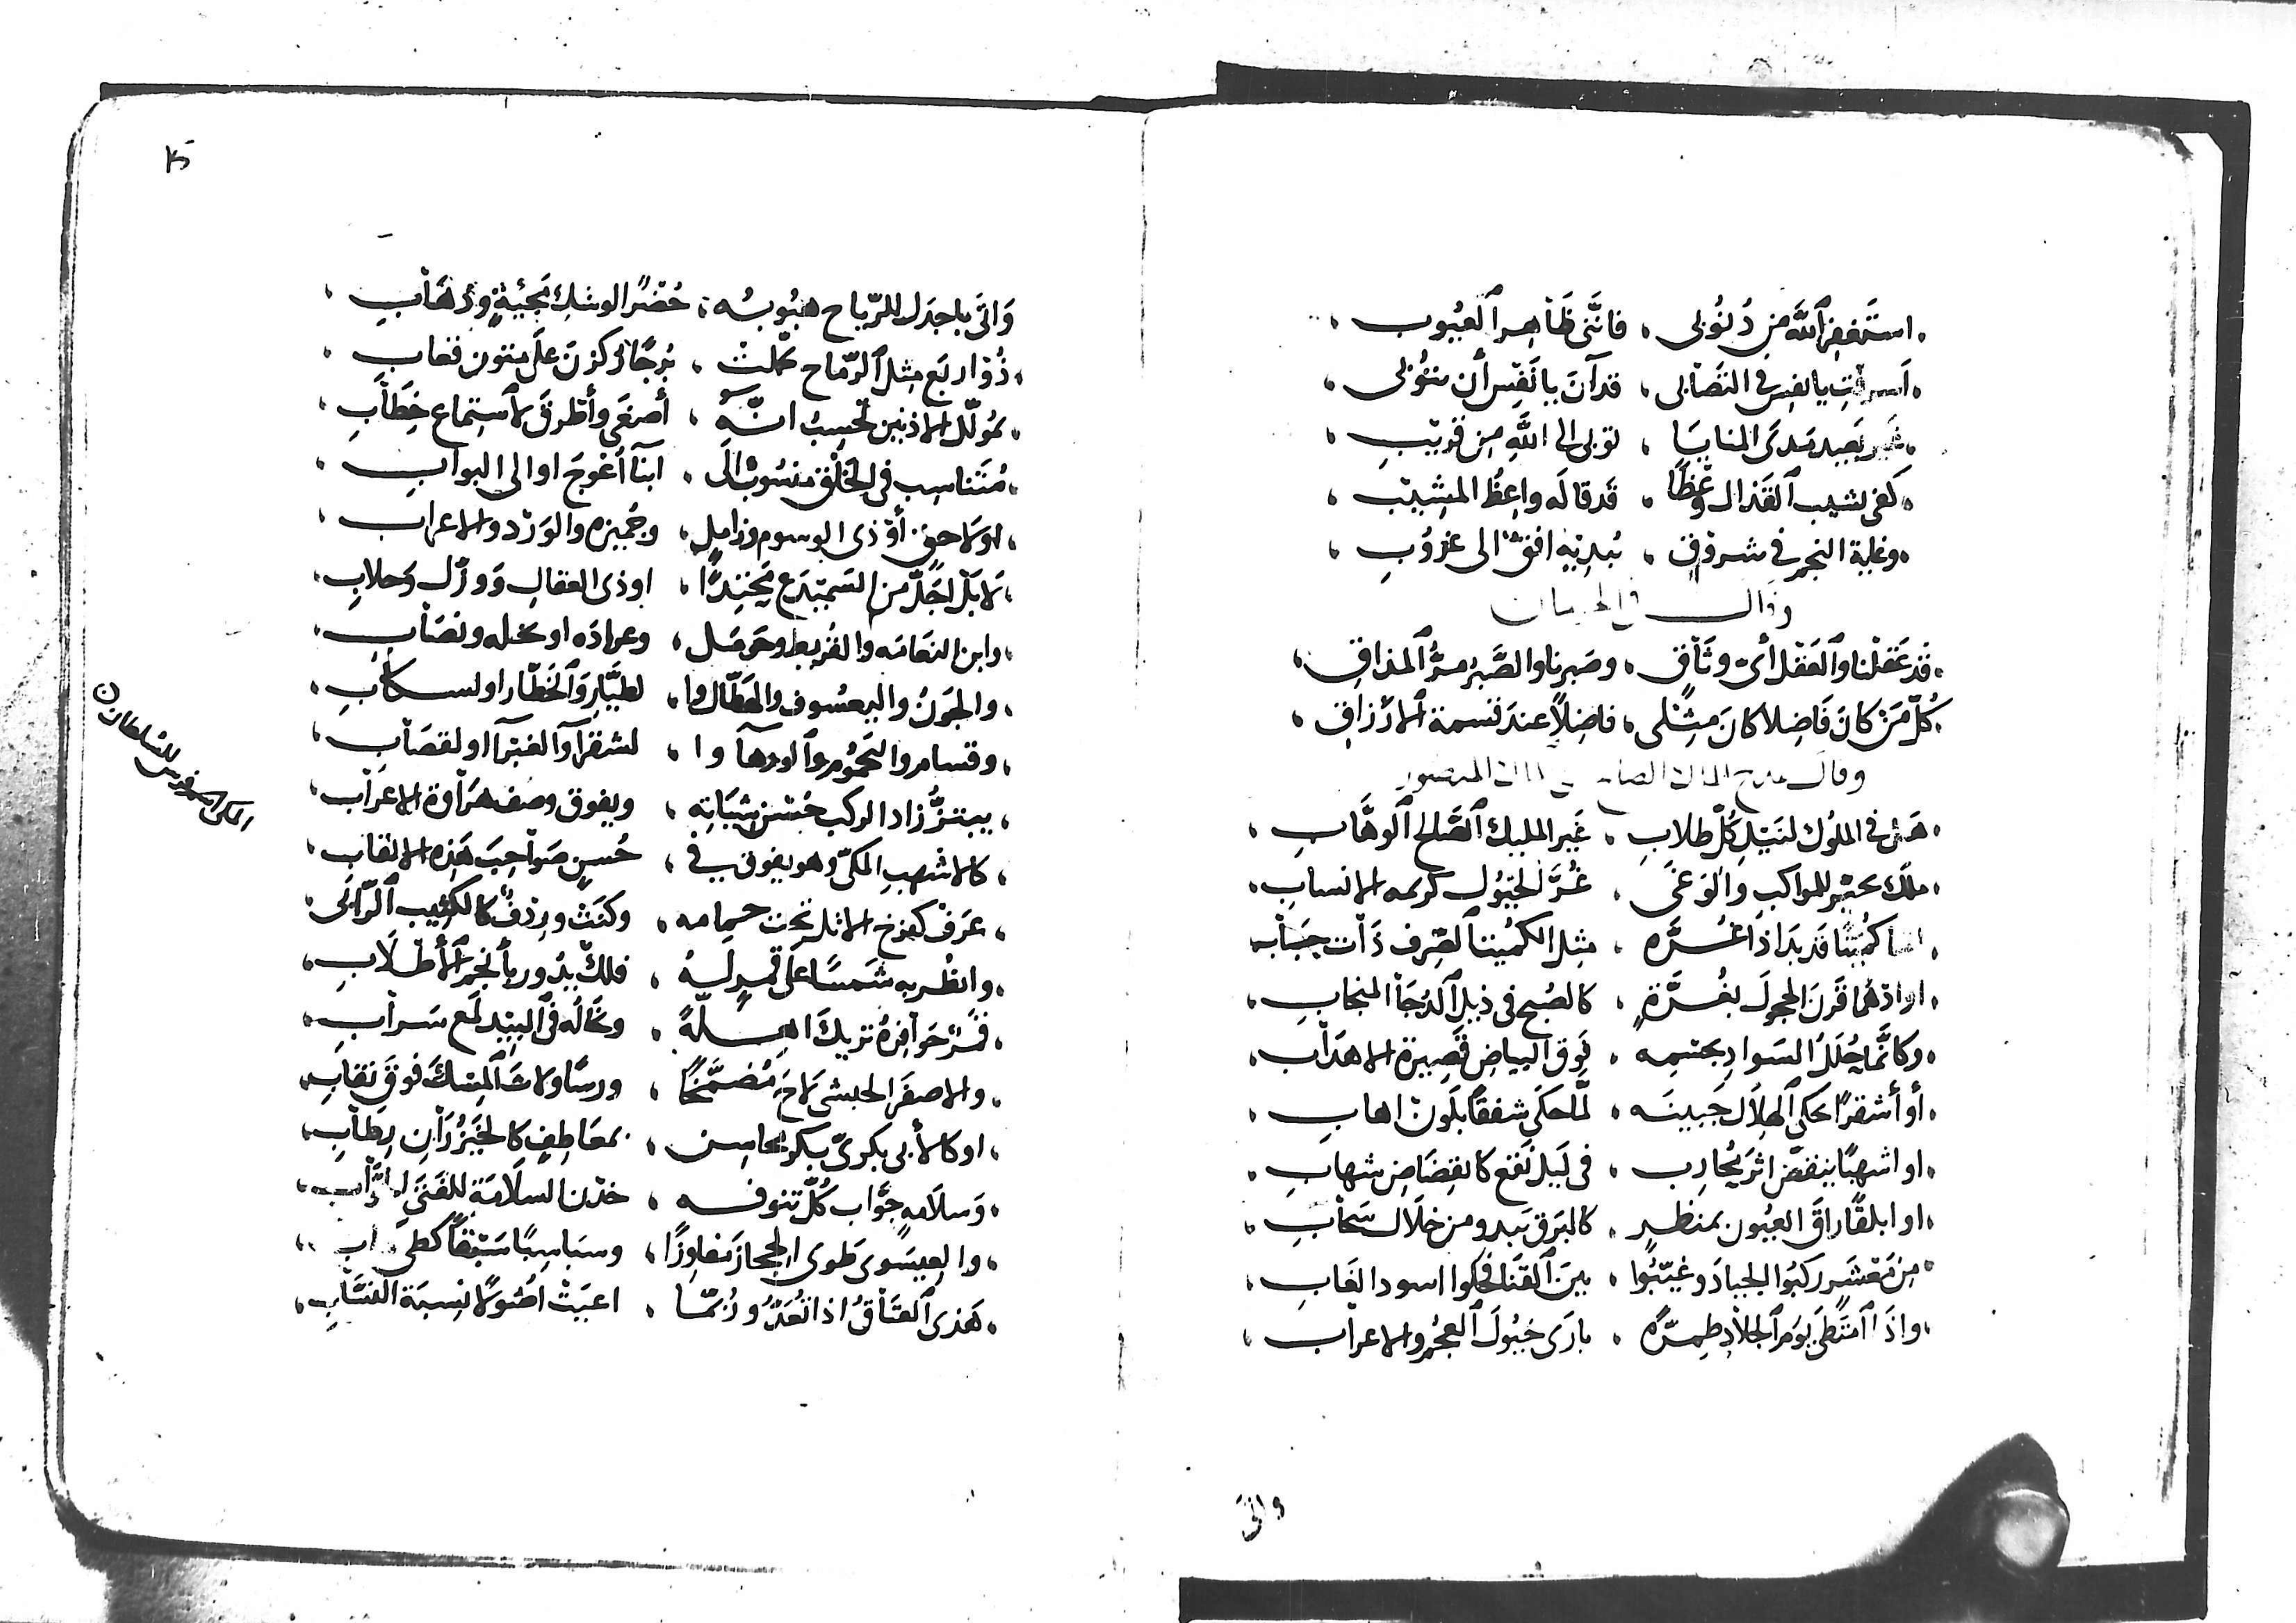 استغفر الله من ذنوبى ، فاننى ظاهر العيوب ،
اسرفت يا نفس في التصابى ، قد آن يا نفس أن تتوبى ،
غير بعيد مدى المنايا ، توبى الى الله من قريب ،
كفى بشيب القذال وعظا ، قد قاله واعظ المشيب ،
وغاية النجم في شروق ، تدنيه افق الى غروب ،
وقال في
قد عقلنا والعقل أى وثاق ، وصبرنا والصبر مر المذاق ،
كل من كان فاضلا كان مثلى ، فاضلا عند قسمة الارزاق ،
وقال يمدح الملك الصالح المنصور
هل فى الملوك لنيل كل طلاب ، غير المليك الصالح الوهاب ،
ملك للمواكب والوغى ، غر الخيول كريمه الانساب ،
اما كميتا قد بدا ذا غره ، مثل الكميت الصرف ذات حباب
او ادهما قرن الحجول بغرة ، كالصبح في ذيل الدجا المنجاب ،
وكانما حلل السواد بجسمه ، فوق البياض قصيرة الاهداب ،
أو أشقرا يحكى الهلال جبينه ، لما حكى شفقا بلون اهاب ،
او اشهبا ينقض اثر محارب ، في ليل نقع كانقضاض شهاب ،
او ابلقا راق العيون بمنظر ، كالبرق يبدو من خلال سحاب ،
من معشر ركبوا الجياد وغيبوا ، بين القنا فحكوا اسود الغاب ،
واذا امتطى يوم الجلاد طمره ، بارى خيول العجم والاعراب ،
واتى
واتى باجدل للرياح هبوبه ، حضرا لوشك مجيئة وذهاب ،
ذو اربع مثل الرماح تمكنت ، بزجا ركزن على متون قعاب ،
بمؤلل الاذنين تحسب انه ، أصغى وأطرق لاستماع خطاب ،
متناسب فى الخلق منسوب الى ، ابنآ أعوج او الى البواب ،
او لاحق أو ذى الوسوم وزامل ، وحميزه والورد والاعراب ،
لا بل اجل من السميدع محتدا ، او ذى العقال وورل وحلاب ،
وابن النعامه والقريط وحومل ، وعراده او نحله ونصاب ،
والجون واليعسوف والعطال وا ، لطيار والخطار او لسكاب ،
وقسام واليحموم والورهآ وا ، لشقرآ والغبرآ او لقصاب ،
يبتز زاد الركب حسن شياته ، ويفوق وصف هراوة الاعراب ،
كالاشهب المكى وهو يفوق فى ، حسن صواحب هذه الالقاب ،
عرف كفرخ الاثل تحت حمامه ، وكنت وردف كالكثيب الرابى ،
وانظر به شمسا على قمر له ، فلك يدور بأنجم الأطلاب ،
حوافره تريك اهلة ، وتخاله فى البيد لمع سراب ،
والاصفر الحبشى لاح مضمخا ، ورسا ولاث المسك فوق نقاب ،
او كالأبى بكرى بكر محاسن ، بمعاطف كالخيزران رطاب ،
وسلامه جواب كل تنوفه ، خدن السلامة للفتى
والعيسوى طوى الحجاز مفاوزا ، وسباسبا سبقا كطى
هذى العتاق اذا تعد وربما ، اعيت اصولا نسبة النساب ،
للسلطان